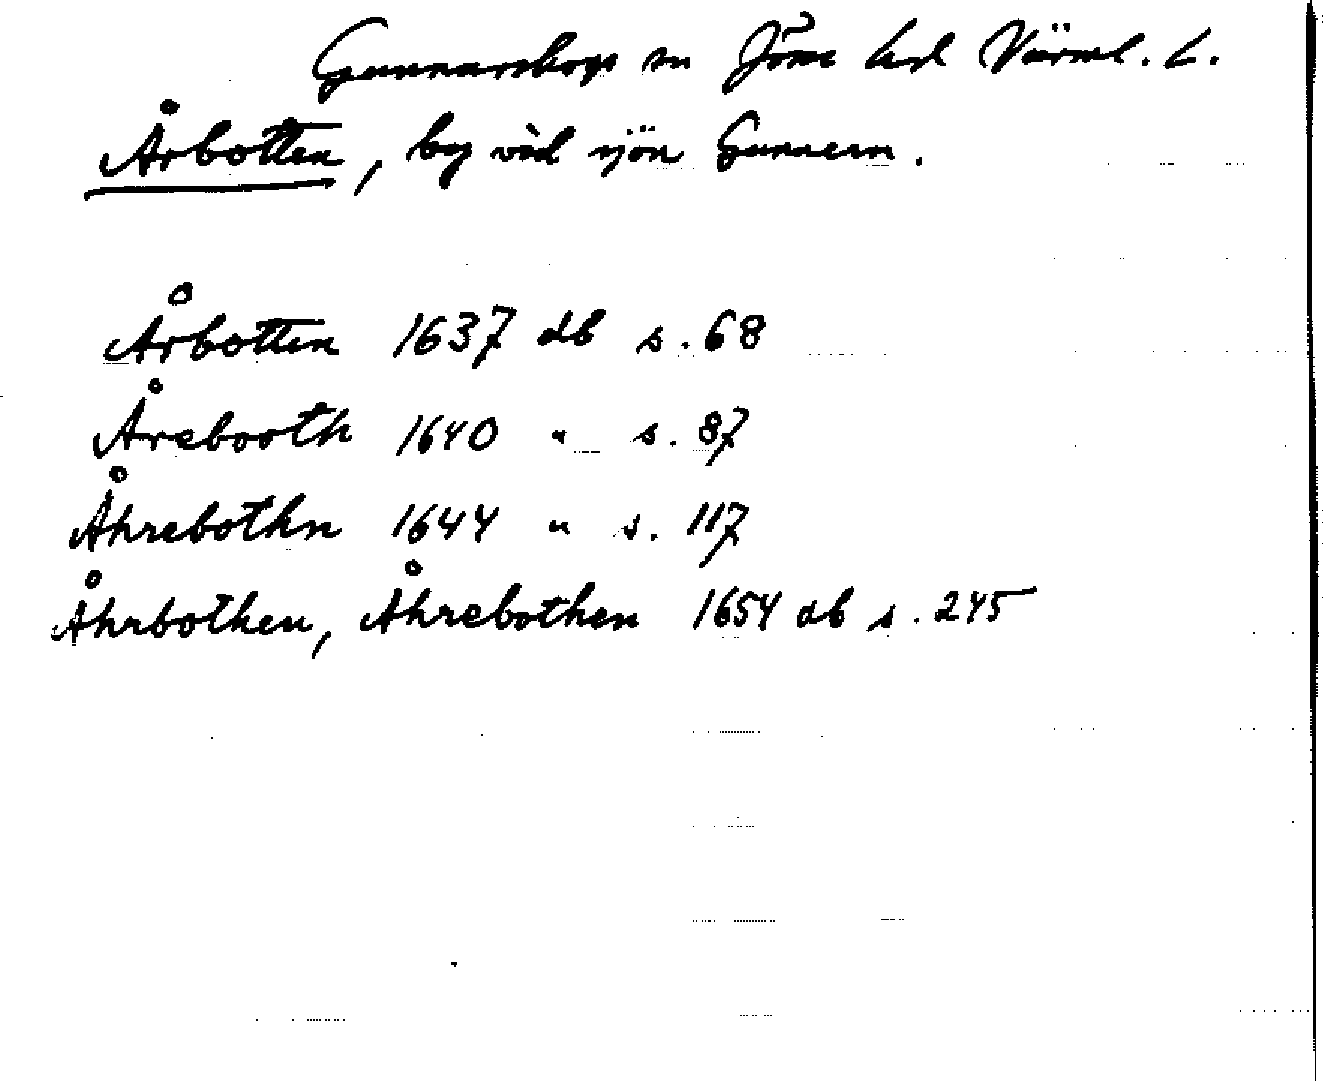 Gunnarskogs sn Jösse hd Värml. L.
Årbotten, by vid sjön Gunnern.
Årbotten 1637 db s. 68
Årebooth 1640 " s. 87
Åhrebothn 1644 " s. 117
Åhrbothen, Åhrebothen 1654 db s. 245